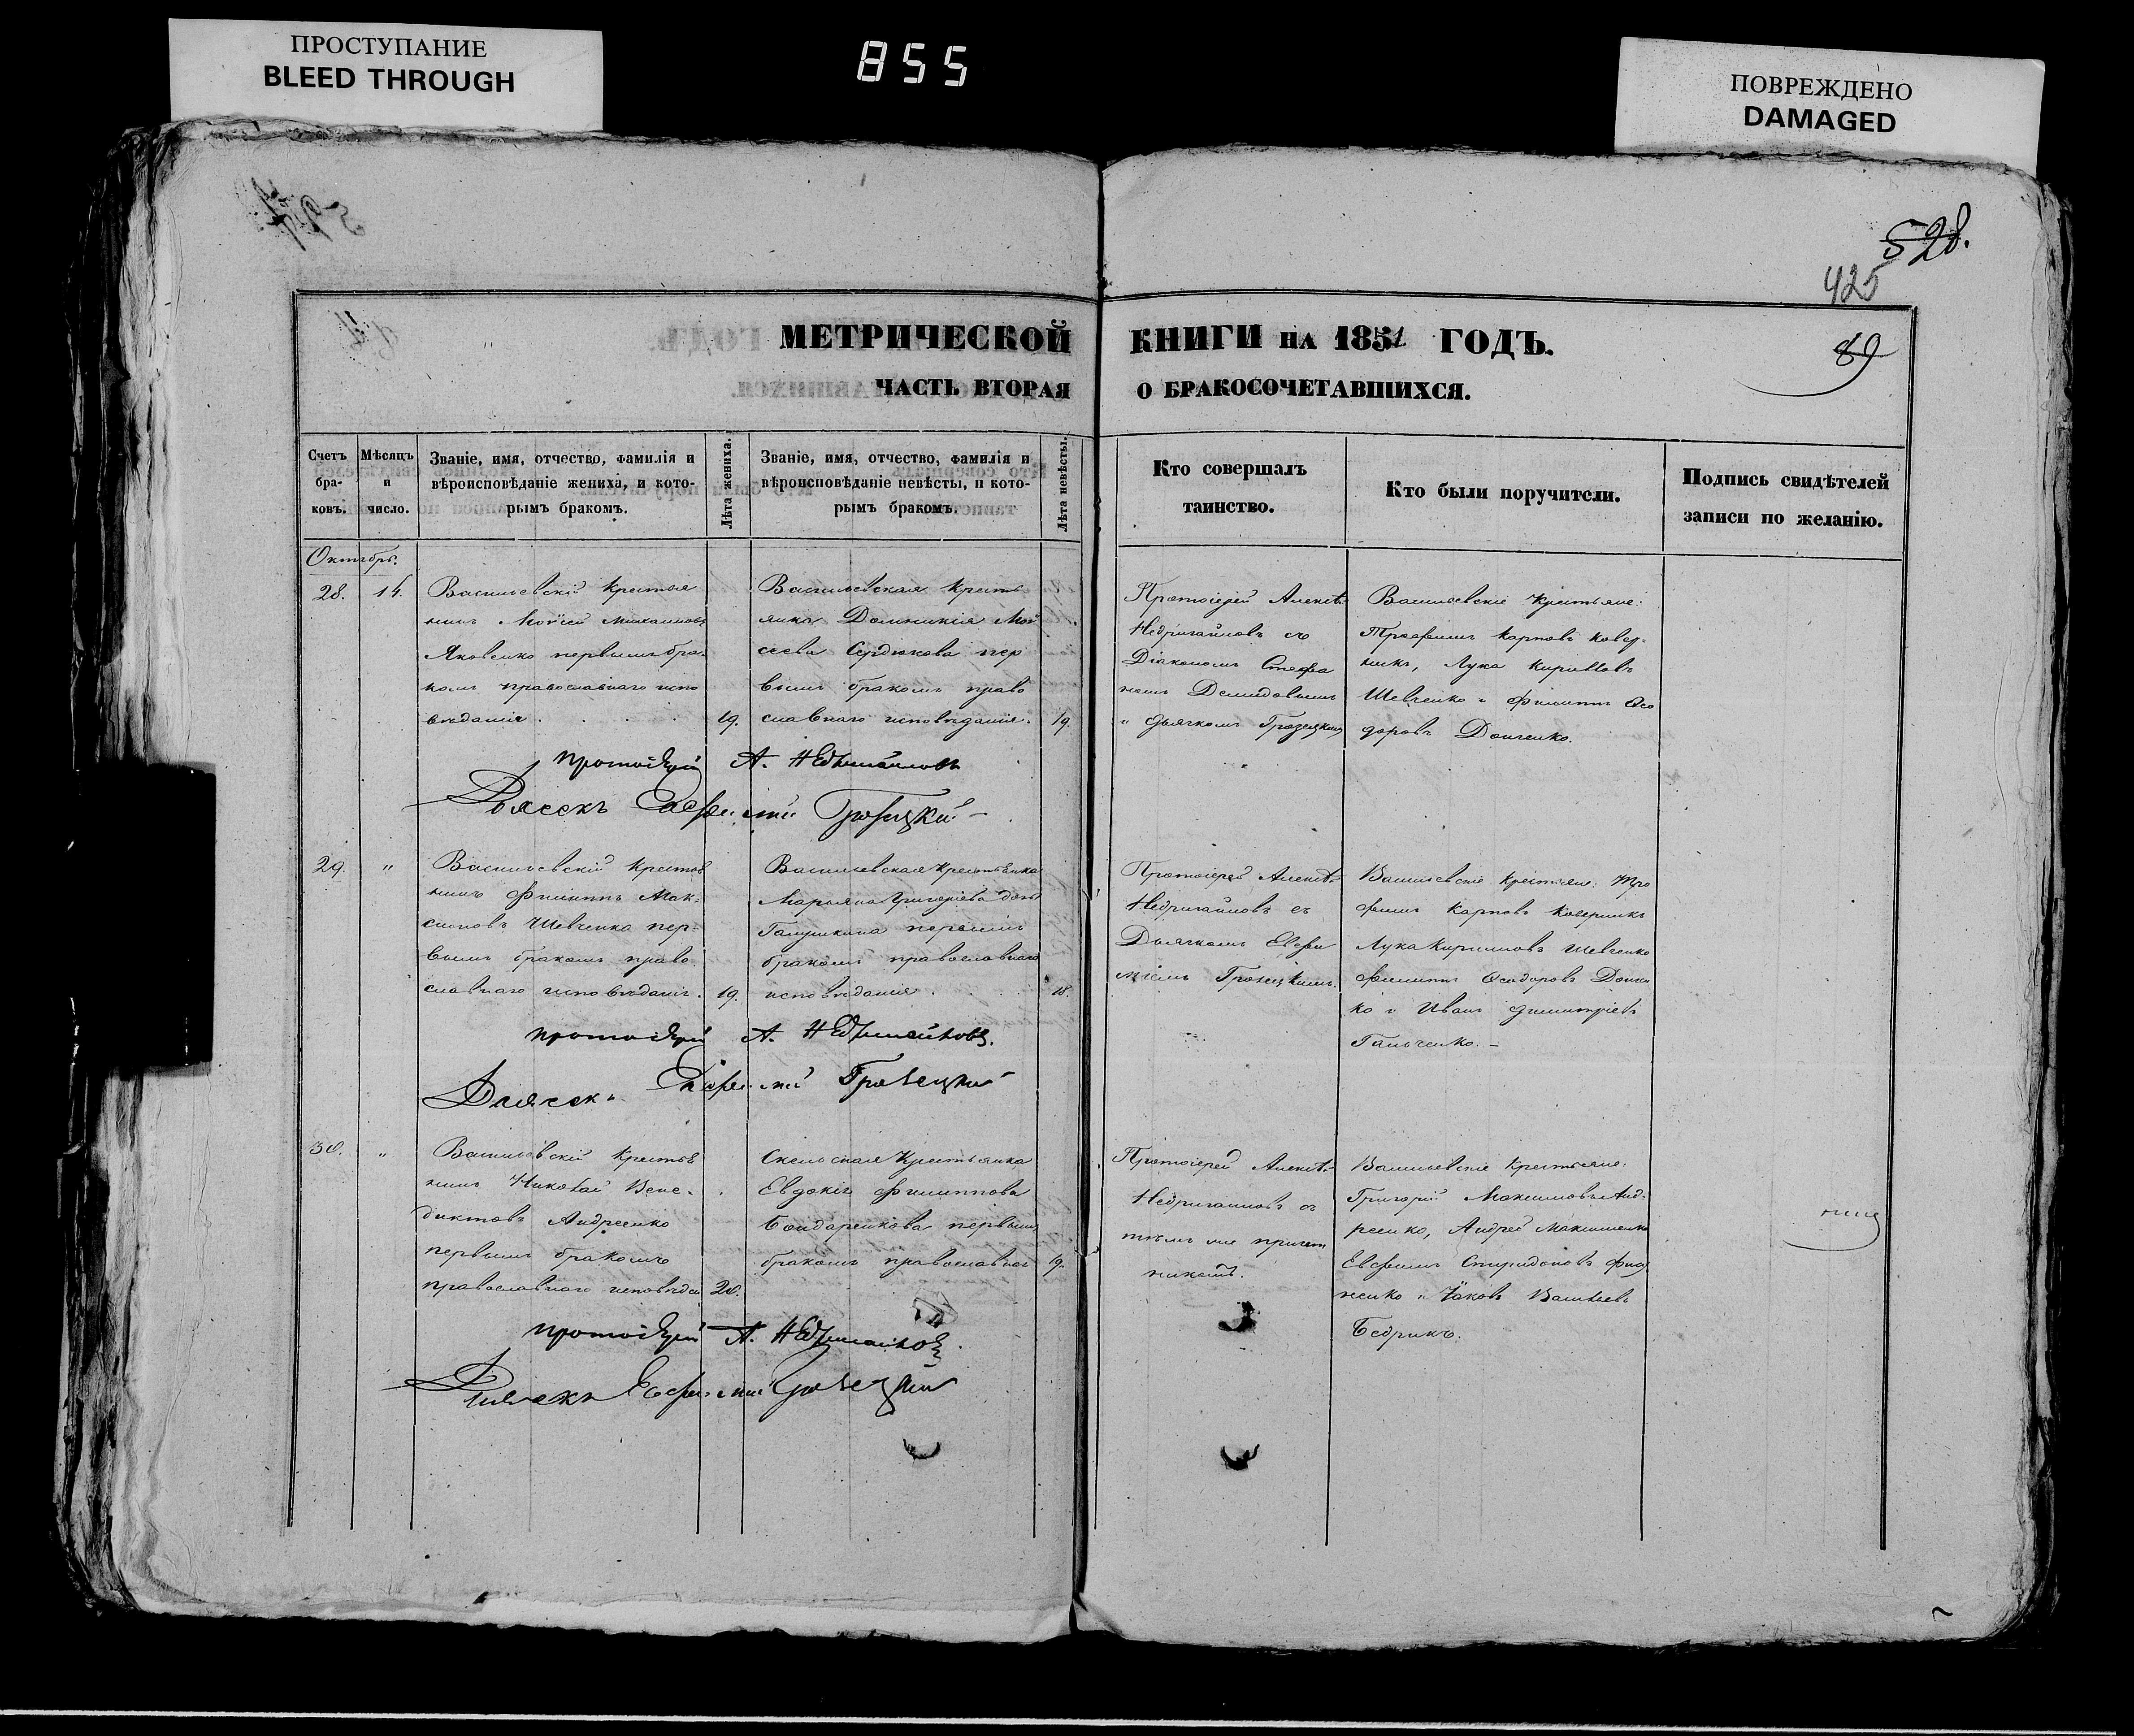 ПРОСТУПАНИЕ
BLEED THROUGH
855
ПОВРЕЖДЕНО
DAMAGED
528.
425
89
МЕТРИЧЕСКОЙ КНИГИ НА 1851 ГОДЪ.
ЧАСТЬ ВТОРАЯ О БРАКОСОЧЕТАВШИХСЯ.
Счетъ бра-ковъ.
Мѣсяцъ и число.
Званіе, имя, отчество, фамилія и
вѣроисповѣданіе жениха, и кото-
рымъ бракомъ.
Лѣта жениха.
Званіе, имя, отчество, фамилія и
вѣроисповѣданіе невѣсты, и кото-
рымъ бракомъ.
Лѣта невѣсты.
Кто совершалъ
таинство.
Кто были поручители.
Подпись свидѣтелей
записи по желанію.
Октябрь.
28. 14.
Васильевскій крестья
нинъ Моѵсей Михаиловъ
Яковенко первымъ бра-
комъ православнаго испо
вѣданія
19.
Васильевская кресть
янка Домникія Мой
сеева Сердюкова пер
вымъ бракомъ право
славнаго исповѣданія.
19.
Протоіерей Алексѣй
Недригайловъ съ
Діакономъ Стефа
номъ Демидовымъ
и дьячкомъ Грозецкимъ
Васильевскіе крестьяне:
Трофимъ Карповъ Ковер-
никъ, Лука Кирилловъ
Шевченко и Филиппъ Ѳео
доровъ Донченко.
протоіерей А. Недригайловъ
Дьячекъ Евфимій Грозецкій
29. "
Васильевскій крестья
нинъ Филиппъ Мак-
симовъ Шевченко пер-
вымъ бракомъ право
славнаго исповѣданія.
19.
Васильевская крестьянка
Марьяна Григорьева дочь
первымъ
бракомъ православнаго
исповѣданія
18.
Протоіерей Алексѣй
Недригайловъ съ
Дьячкомъ Евфи
міемъ Грозецкимъ.
Васильевскіе крестьяне: Тро
фимъ Карповъ Коверникъ
Лука Кирилловъ Шевченко
Филиппъ Ѳеодоровъ Дончен
ко и Иванъ Димитріевъ
Гальченко. –
протоіерей А. Недригайловъ.
Дьячекъ Евфимій Грозецкій
30. "
Васильевскій крестья
нинъ Николай Вене-
диктовъ Андреенко
первымъ бракомъ
православнаго исповѣдан
20.
Скельская крестьянка
Евдокія Филиппова
Бондаренкова первымъ
бракомъ православнаго
19.
Протоіерей Алексѣй
Недригайловъ съ
тѣмъ же причет
никомъ.
Васильевскіе крестьяне:
Григорій Максимовъ Анд-
реенко, Андрей Максименко
Евфимъ Спиридоновъ
и Яковъ Васильевъ
Бедрикъ.
протоіерей А. Недригайловъ.
Дьячекъ Евфимій Грозецкій